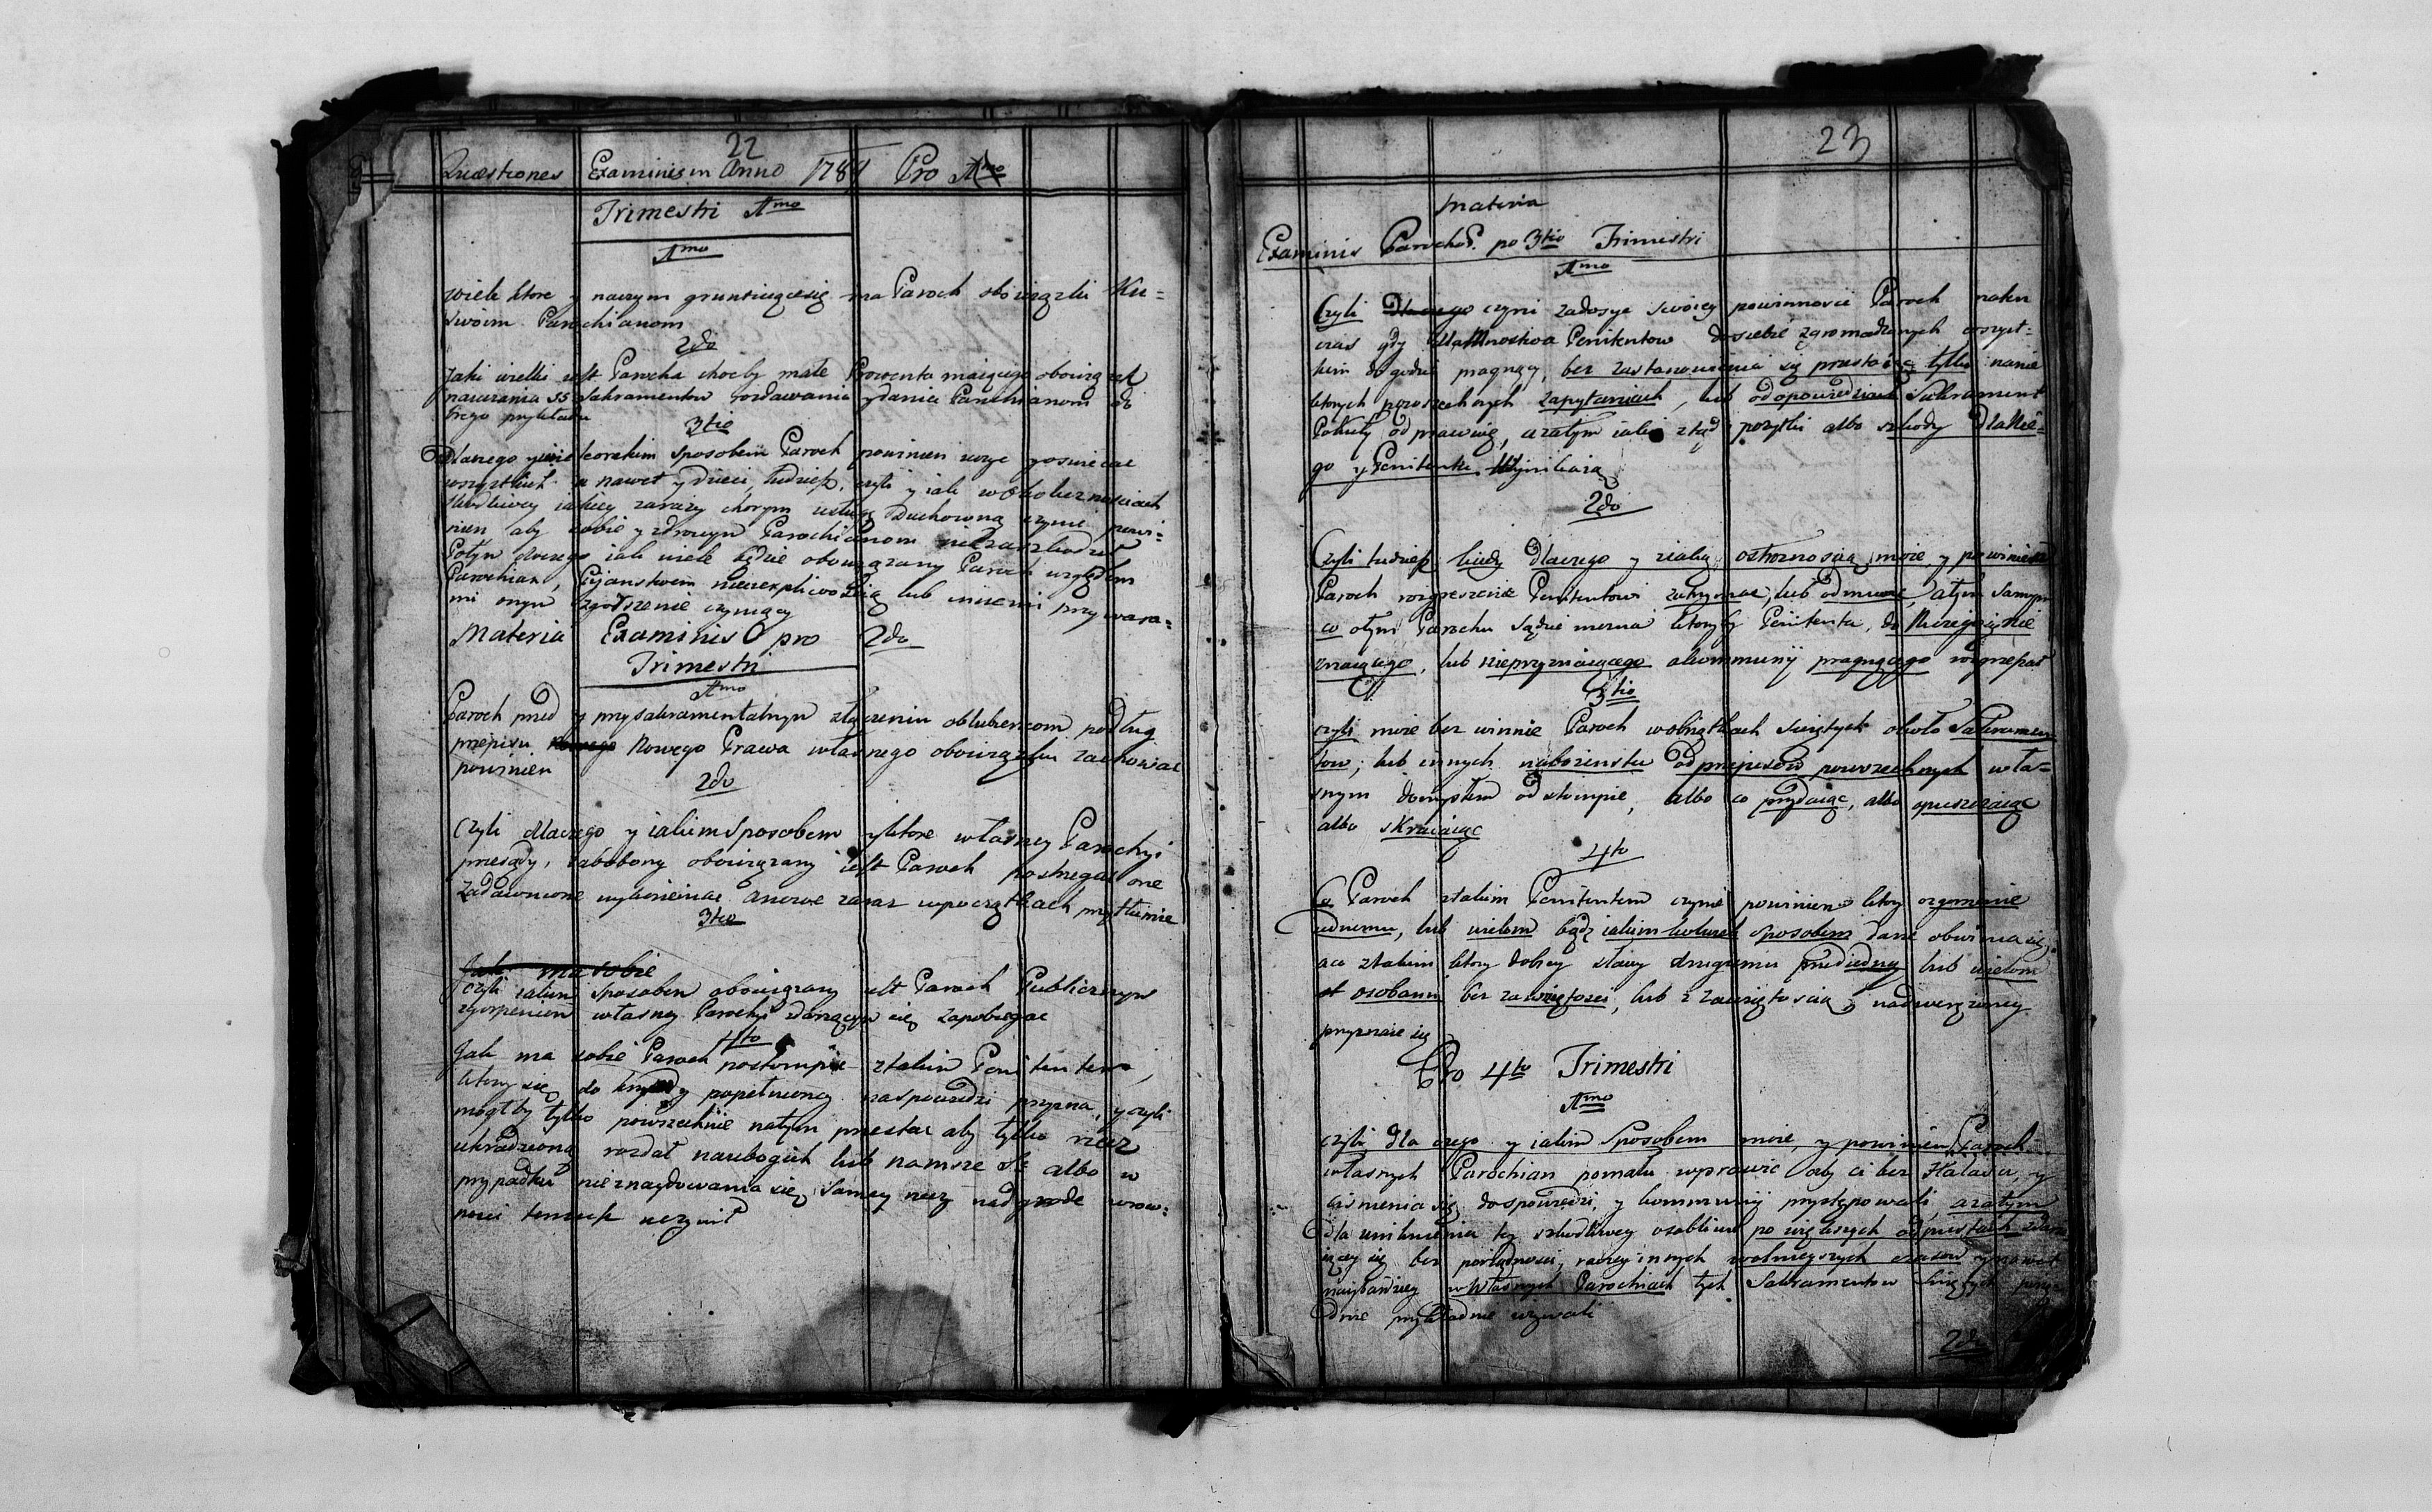 22
Quæstiones Examinis in Anno 1784 Pro Amo
Trimestri Amo
Amo
Wiele ktore y naczym gruntuiącesię ma Paroch obowiązki Ku=
swoim Parochianom
2do
Jaki wielki iest Parocha choćby małe Prowenta maiącego obowiązek
nauczania SS Sakramentow rozdawania ydania Parochianom do
brego przykładu
3tio
Dlaczego y iakim sposobem Paroch powinien uczyc
wszystkich a nawet y dzieci, tudzież, czyli y iak w okolicznosciach
szkodliwey iakiey zarazy chorym usługę Duchowną czynic powi=
nien aby sobie y zdrowym Parochianom niezaszkodził
Potym dlaczego iak wiele będzie obowiązany Paroch względem
Parochian, Pijanstwem lub innemi przywara=
mi onym zgorszenie czyniący
Materia Examinis pro 2do
Trimestri
Amo
Paroch przed y przysakramentalnym złączeniu oblubiencom podług
przepisu Nowego Prawa własnego obowiązku zachowac
powinien
2do
Czyli dlaczego y iakim sposobem y ktore własney Parochyi
przesądy, zabobony obowiązany iest Paroch postrzegac one
zadawnione wykorzeniac anowe zaraz wpoczątkach przytłumic
3tio
Jak ma sobie
czyli iakim sposobem obowiązany iest Paroch Publicznym
zgorszeniom własney Parochyi zdarzącym się zapobiegac
4to
Jak ma sobie Paroch postompic ztakim Penitentem,
ktory się do krzywdy popełnioney naspowiedzi przyzna, y czyli
mogłby tylko powszechnie natym przestac aby tylko rzecz
ukradzioną rozdał naubogich lub namsze Ste albo w
przypadku nieznaydowania się samey rzeczy nadgrode wrow=
nosci temuż uczynił
23
Materia
Examinis Parochor. po 3tio Trimestri
Amo
Czyli Dlaczego czyni zadosyc swoiey powinnosci Paroch naten
czas gdy Mnostwa Penitentow dosiebie zgromadzonych wszyst=
kim dogodzic pragnący, bez zastanowienia się przestaiąc tylko nanie
ktorych powszechnych zapytaniach, lub odopowiedziach Sakrament
Pokuty odprawuie, azatym iakie ztąd pozytki albo szkody Dlanie=
go y Penitenta Wynikaią
2do
Czyli tudzież kiedy dlaczego y ziaką ostroznoscią moze y powinien
Paroch rozgrzeszenie Penitentowi zatrzymac, lub odmowic, Atym samym
co otym Parochu sądzic mozna ktoryby Penitenta, do Niczegosięnie
znaiącego, lub nieprzyznaiącego akommunij pragnącego rozgrzeszał
3tio
czyli moze bez winnie Paroch wobrządkach swiętych około Sakramen
tow, lub innych nabozenstw odprzepisow powszechnych wła=
snym domysłem odstompic, albo co przydaiąc, albo opuszczaiąc
albo skracaiąc
4to
Co Paroch ztakim Penitentem czynic powinien ktory ozgorszenie
iednemu, lub wielom bądz iakim kolwiek sposobem dane obwinia się,
aco ztakim ktory dobrey sławy drugiemu przediedną lub wielom
osobami bez zawziętosci, lub z zawziętoscią nadwerężoney
przyznaie się
Pro 4to Trimestri
Amo
czyli dla czego y iakim Sposobem moze y powinien Paroch
własnych Parochian pomału wprawic aby ci bez Hałasu, y
cisnienia się dospowiedzi y kommunij przystępowali, azatym
dla uniknienia tey szkodliwey osobliwie po większych odpustach zdarza
iącey się bez porządnosci, raczey innych wolnieyszych czasow ynawet
naybardziey wWłasnych Parochiach tych Sakramentow Swiętych porzą
dnie przykładnie uzywali
2do